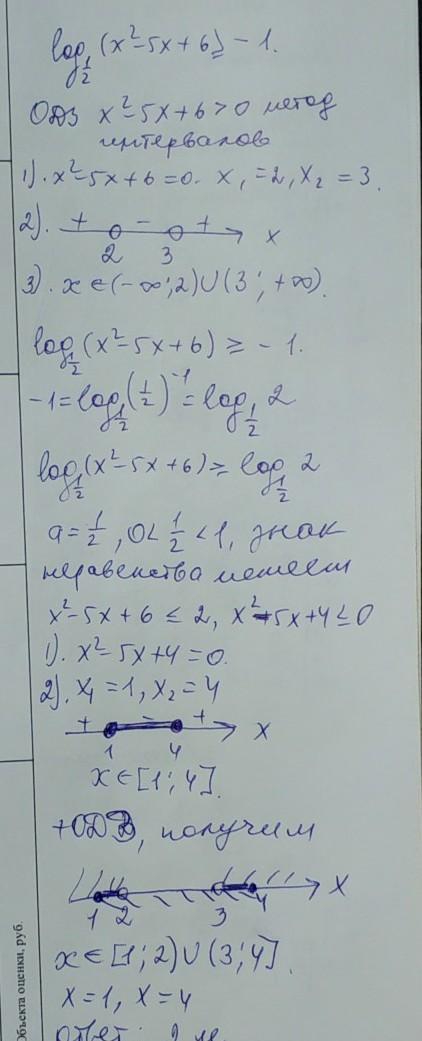 log_{1/2}(x²-5x+6) ≥ -1.
ОДЗ x²-5x+6>0 метод
интервалов
1). x²-5x+6=0. x₁=2, x₂=3.
2). + - + x
2 3
3). x∈(-∞;2)∪(3;+∞).
log_{1/2}(x²-5x+6) ≥ -1.
-1=log_{1/2}(1/2)⁻¹=log_{1/2} 2
log_{1/2}(x²-5x+6) ≥ log_{1/2} 2
a=1/2, 0<1/2<1, знак
неравенства меняем
x²-5x+6 ≤ 2, x²-5x+4≤0
1). x²-5x+4=0.
2). x₁=1, x₂=4
+ - + x
1 4
x∈[1;4].
+ОДЗ, получим
x
1 2 3 4
x∈[1;2)∪(3;4].
x=1, x=4
ответ:
Объекта оценки, руб.